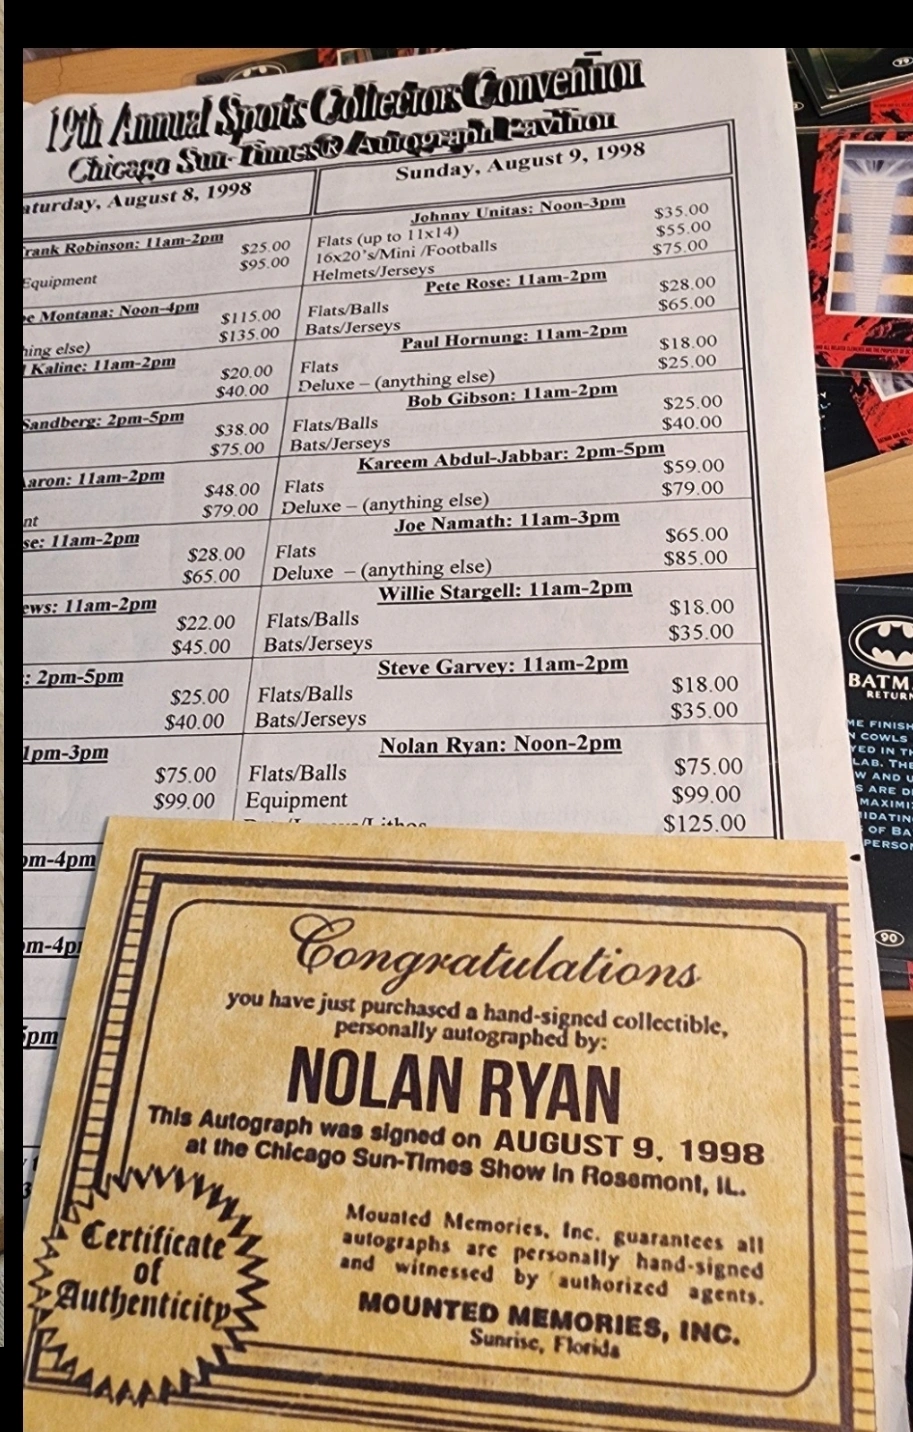 19th Annual Sports Collectors Convention
Chicago Sun-Times® Autograph Pavilion
aturday, August 8, 1998
rank Robinson: 11am-2pm
$25.00
$95.00
Equipment
e Montana: Noon-4pm
$115.00
$135.00
hing else)
Kaline: 11am-2pm
$20.00
$40.00
Sandberg: 2pm-5pm
$38.00
$75.00
aron: 11am-2pm
$48.00
nt $79.00
se: 11am-2pm
$28.00
$65.00
ews: 11am-2pm
$22.00
$45.00
: 2pm-5pm
$25.00
$40.00
1pm-3pm
$75.00
$99.00
om-4pm
m-4p
pm
Sunday, August 9, 1998
Johnny Unitas: Noon-3pm
Flats (up to 11x14) $35.00
16x20's/Mini /Footballs $55.00
Helmets/Jerseys $75.00
Pete Rose: 11am-2pm
Flats/Balls $28.00
Bats/Jerseys $65.00
Paul Hornung: 11am-2pm
Flats $18.00
Deluxe – (anything else) $25.00
Bob Gibson: 11am-2pm
Flats/Balls $25.00
Bats/Jerseys $40.00
Kareem Abdul-Jabbar: 2pm-5pm
Flats $59.00
Deluxe – (anything else) $79.00
Joe Namath: 11am-3pm
Flats $65.00
Deluxe – (anything else) $85.00
Willie Stargell: 11am-2pm
Flats/Balls $18.00
Bats/Jerseys $35.00
Steve Garvey: 11am-2pm
Flats/Balls $18.00
Bats/Jerseys $35.00
Nolan Ryan: Noon-2pm
Flats/Balls $75.00
Equipment $99.00
$125.00
Congratulations
you have just purchased a hand-signed collectible,
personally autographed by:
NOLAN RYAN
This Autograph was signed on AUGUST 9, 1998
at the Chicago Sun-Times Show in Rosemont, IL.
Certificate
of
Authenticity
Mounted Memories, Inc. guarantees all
autographs are personally hand-signed
and witnessed by authorized agents.
MOUNTED MEMORIES, INC.
Sunrise, Florida
BATM
RETUR
ME FINISH
N COWLS
YED IN TH
LAB. THE
W AND U
S ARE D
MAXIMI
IDATIN
OF BA
PERSO
90